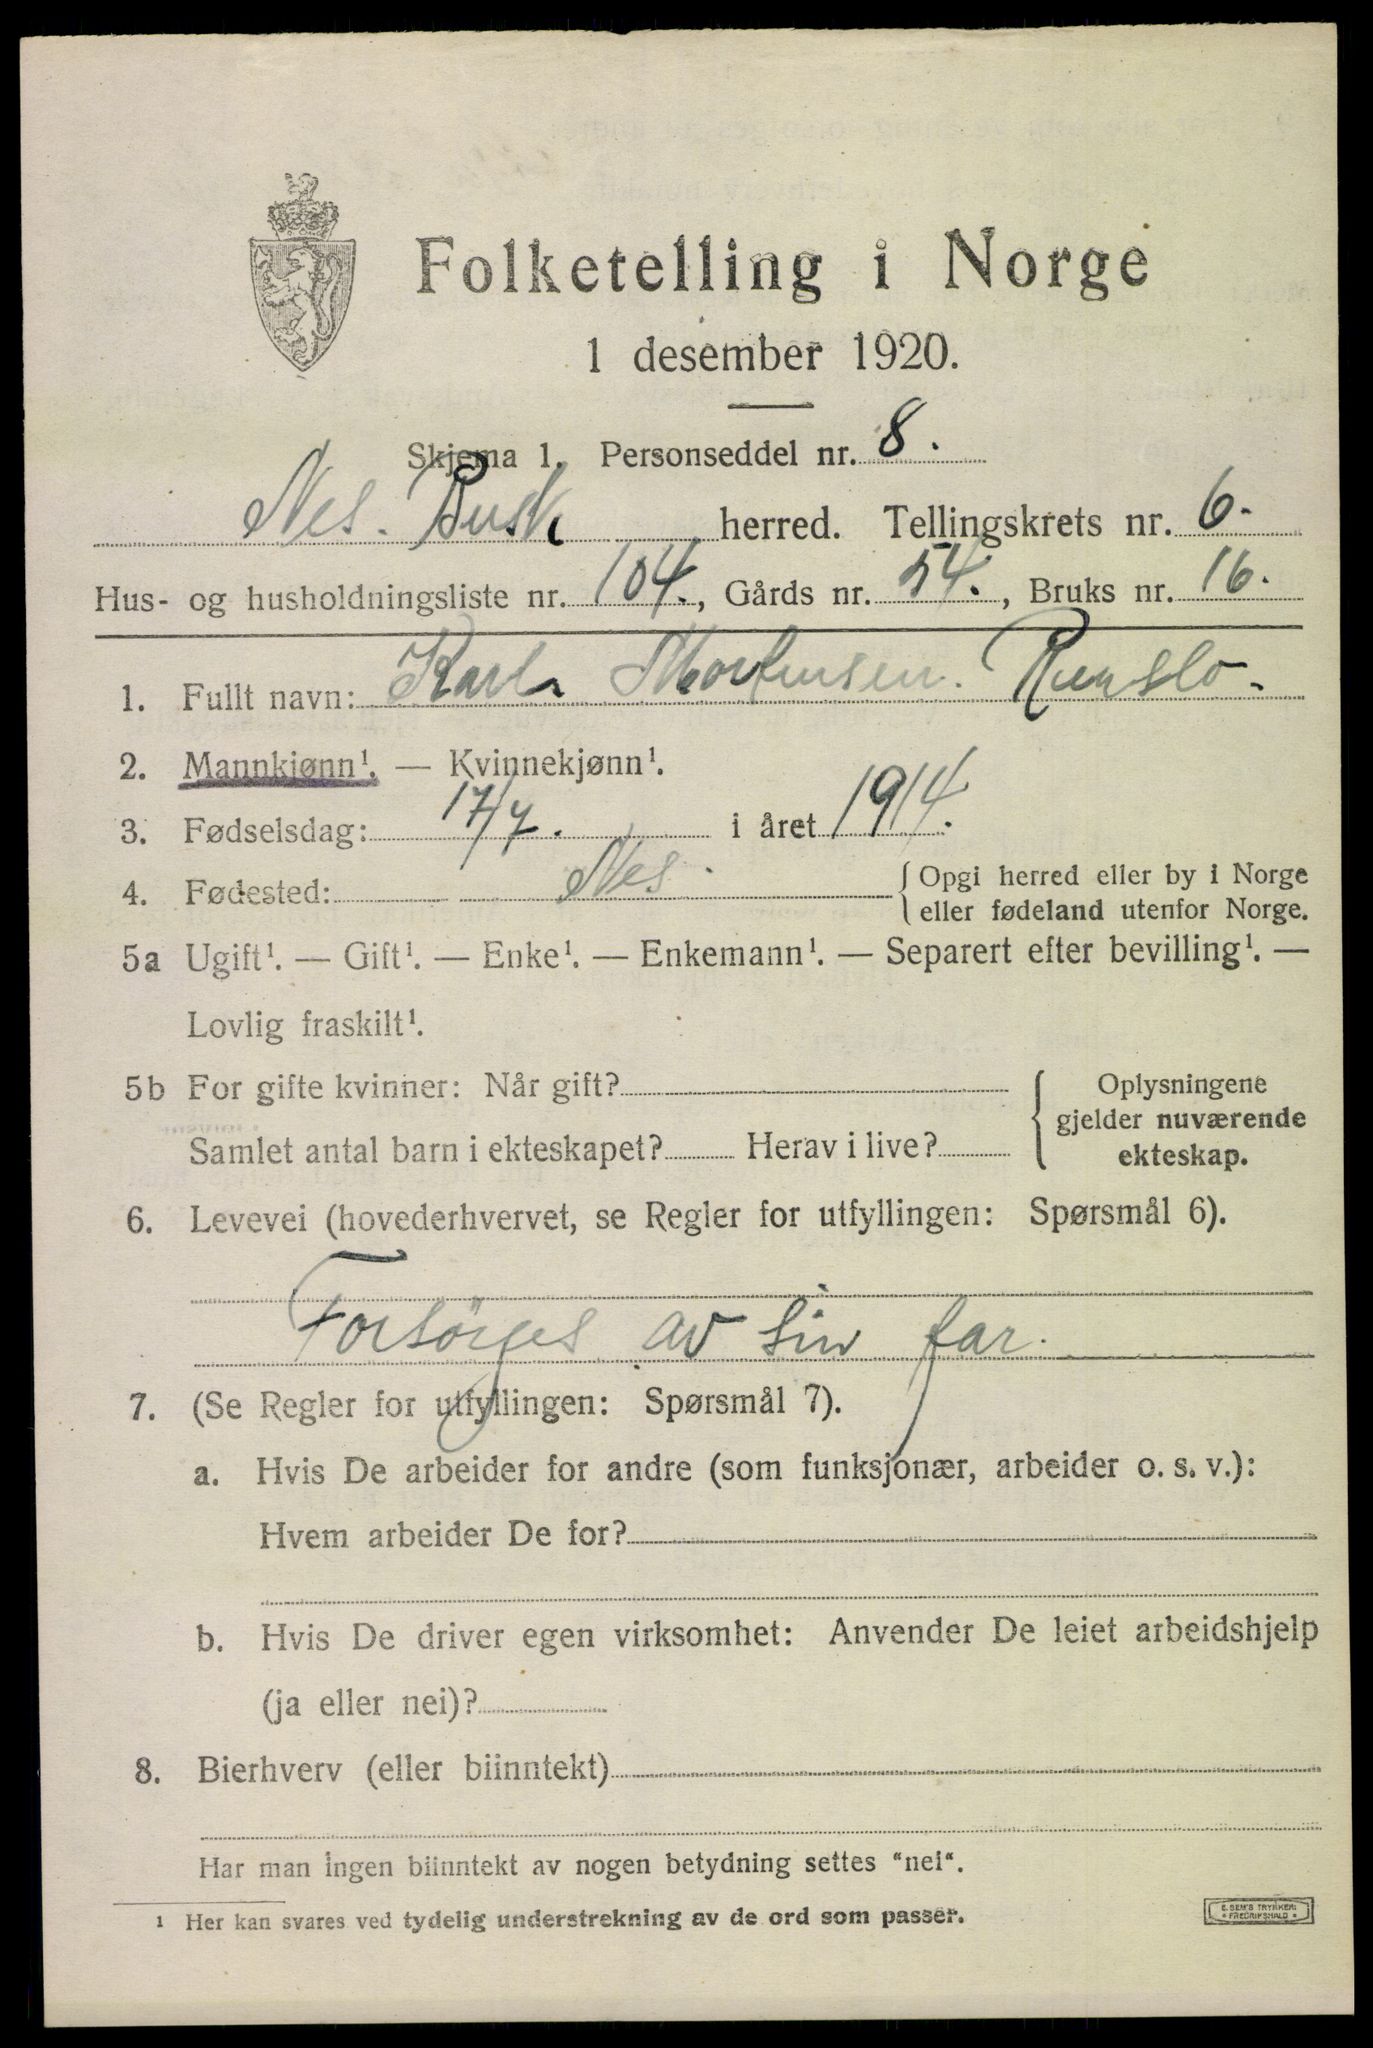 Folketelling i Norge
1 desember 1920.
Skjema 1. Personseddel nr. 8.
Nes. Busk herred. Tellingskrets nr. 6.
Hus- og husholdningsliste nr. 104., Gårds nr. 54., Bruks nr. 16.
1. Fullt navn: Karl Mortensen.
2. Mannkjønn¹. — Kvinnekjønn¹.
3. Fødselsdag: 17/7. i året 1914.
4. Fødested: Nes. { Opgi herred eller by i Norge
eller fødeland utenfor Norge.
5a Ugift¹. — Gift¹. — Enke¹. — Enkemann¹. — Separert efter bevilling¹. —
Lovlig fraskilt¹.
5b For gifte kvinner: Når gift? { Oplysningene
gjelder nuværende
Samlet antal barn i ekteskapet? Herav i live? ekteskap.
6. Levevei (hovederhvervet, se Regler for utfyllingen: Spørsmål 6).
Forsörges av sin far.
7. (Se Regler for utfyllingen: Spørsmål 7).
a. Hvis De arbeider for andre (som funksjonær, arbeider o. s. v.):
Hvem arbeider De for?
b. Hvis De driver egen virksomhet: Anvender De leiet arbeidshjelp
(ja eller nei)?
8. Bierhverv (eller biinntekt)
Har man ingen biinntekt av nogen betydning settes "nei".
¹ Her kan svares ved tydelig understrekning av de ord som passer.
E. SEM'S TRYKKERI
FREDRIKSHALD